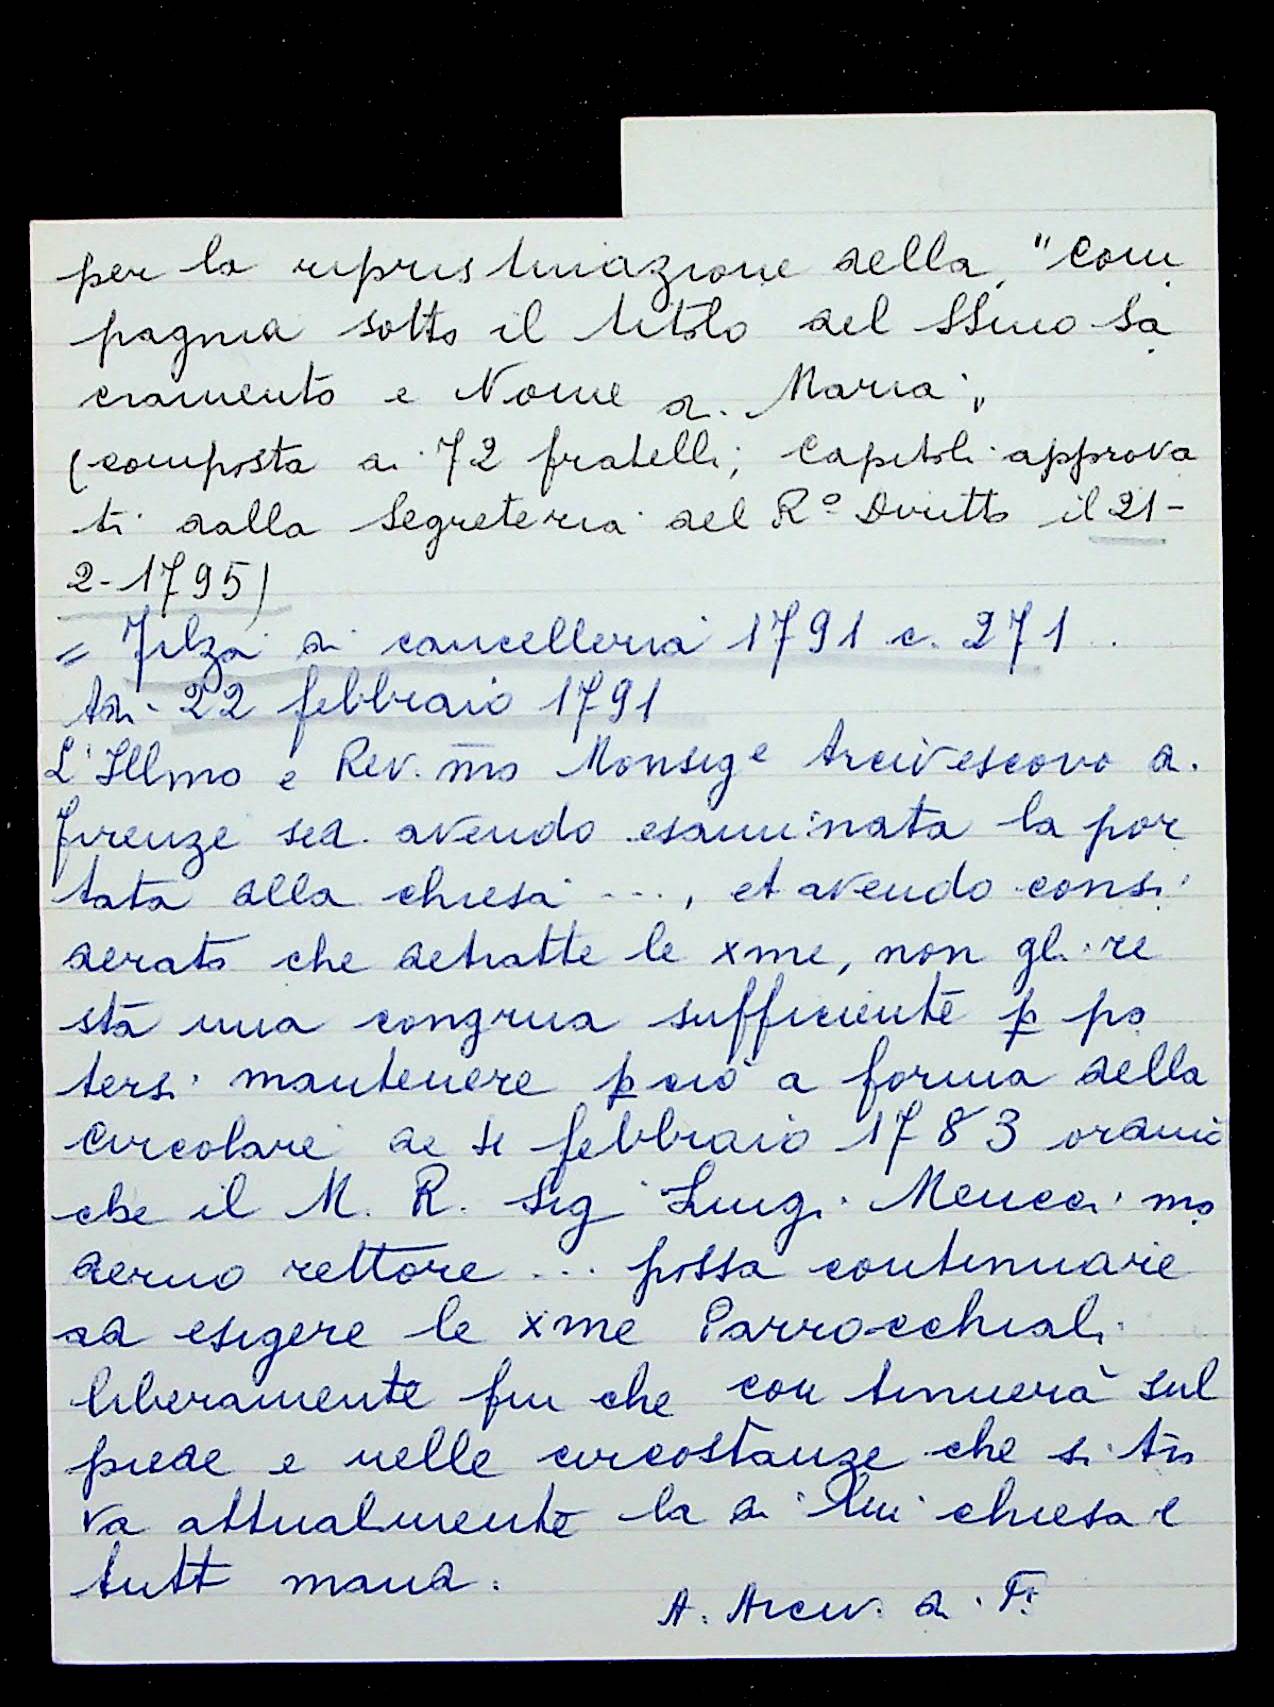 per la ripristinazione della "Com
pagnia sotto il titolo del SSmo Sa
cramento e Nome di Maria",
(composta di 72 fratelli; Capitoli approva
ti dalla Segreteria del R° Diritto il 21-
2-1795)
= Filza di cancelleria 1791 c. 271
Adi 22 febbraio 1791
L'Illmo e Rev.mo Monsig e Arcivescovo di
Firenze sed. avendo esaminata la por
tata della chiesa ..., et avendo consi
derato che detratte le xme, non gli re
sta una congrua sufficiente p po
tersi mantenere pciò a forma della
Circolare de febbraio 1783 ordinò
che il M. R. Sig Luigi Meucci mo
derno rettore ... possa continuare
ad esigere le xme Parrocchiali
liberamente fin che con tinuerà sul
piede e nelle circostanze che si tro
va attualmente la di lui chiesa e
tutt mand.
A. Arciv. di Fi.